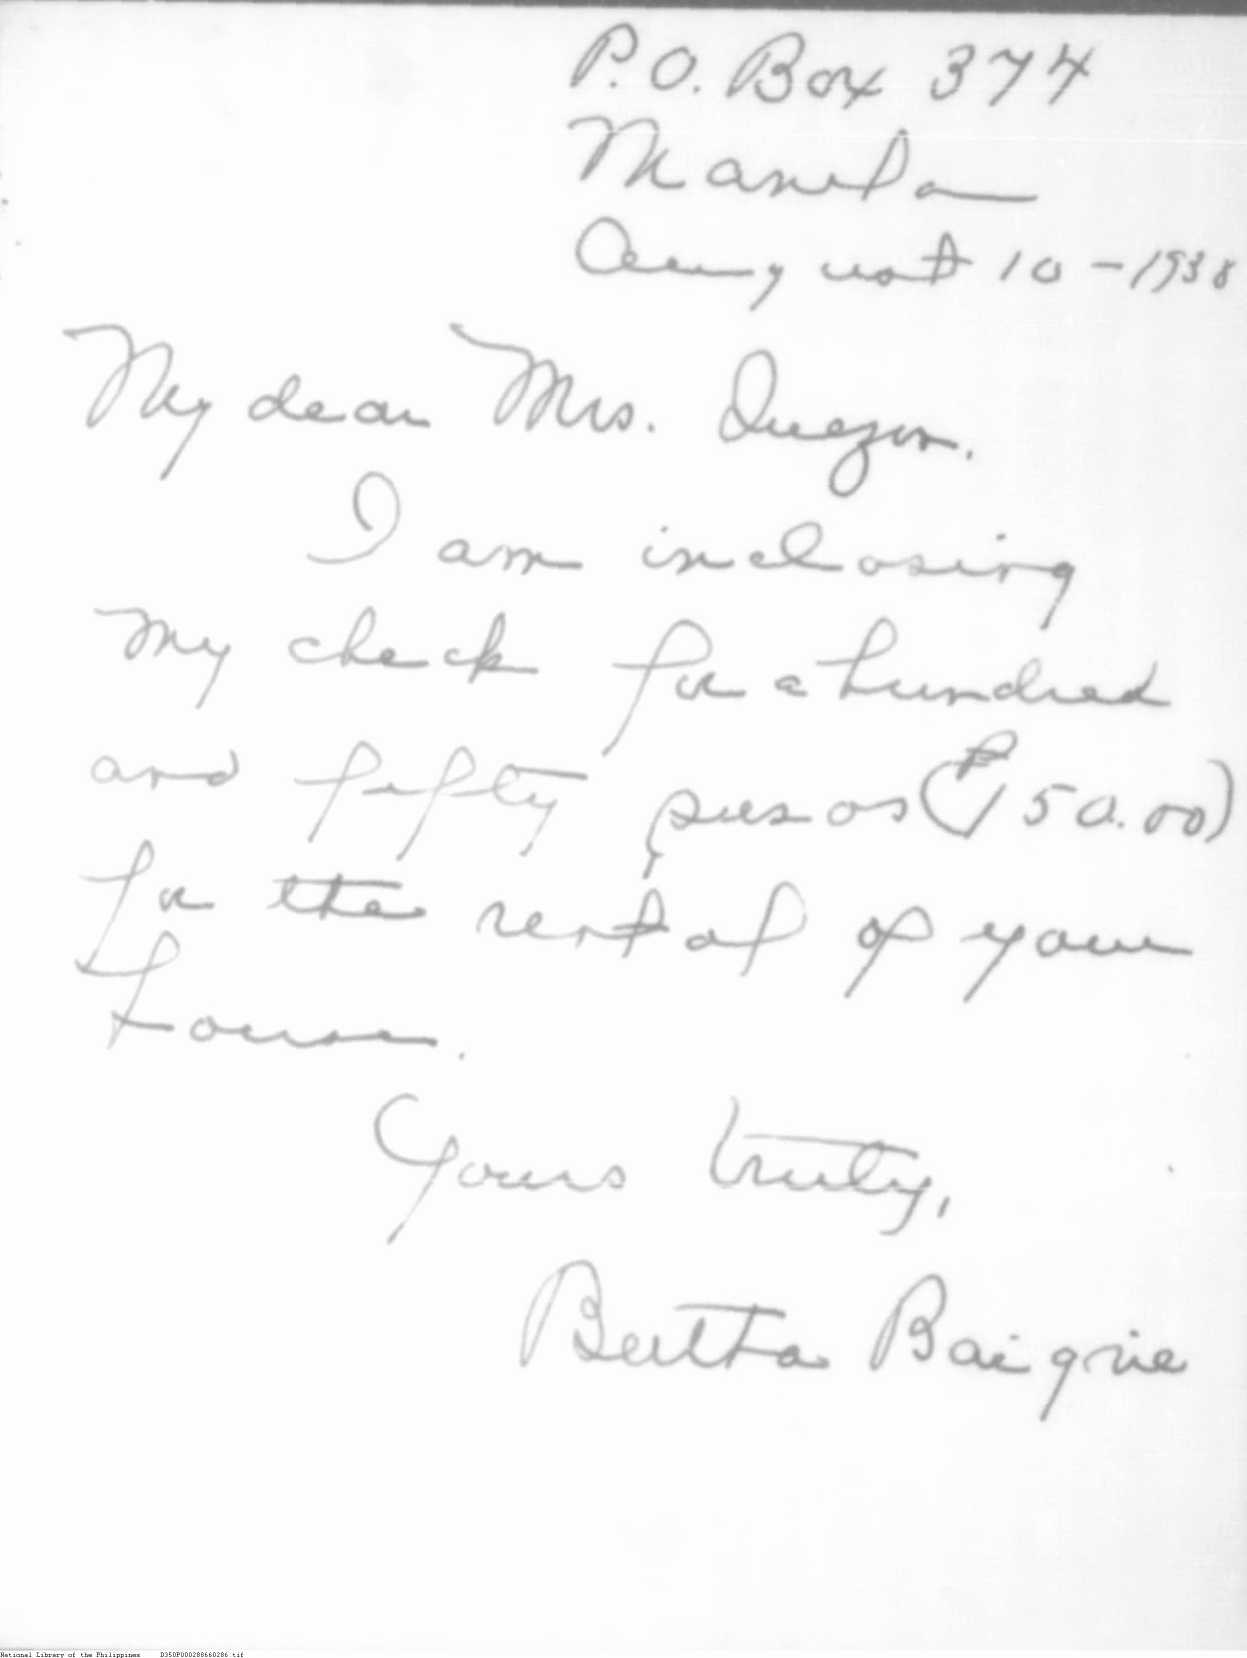 P.O. Box 374
Manila
August 10-1938
My dear Mrs. Quezon.
I am inclosing
my check for a hundred
and fifty pesos (₱150.00)
for the rental of your
house.
Yours truly,
Bertha Baigrie
National Library of the Philippines D350P000288660286.tif